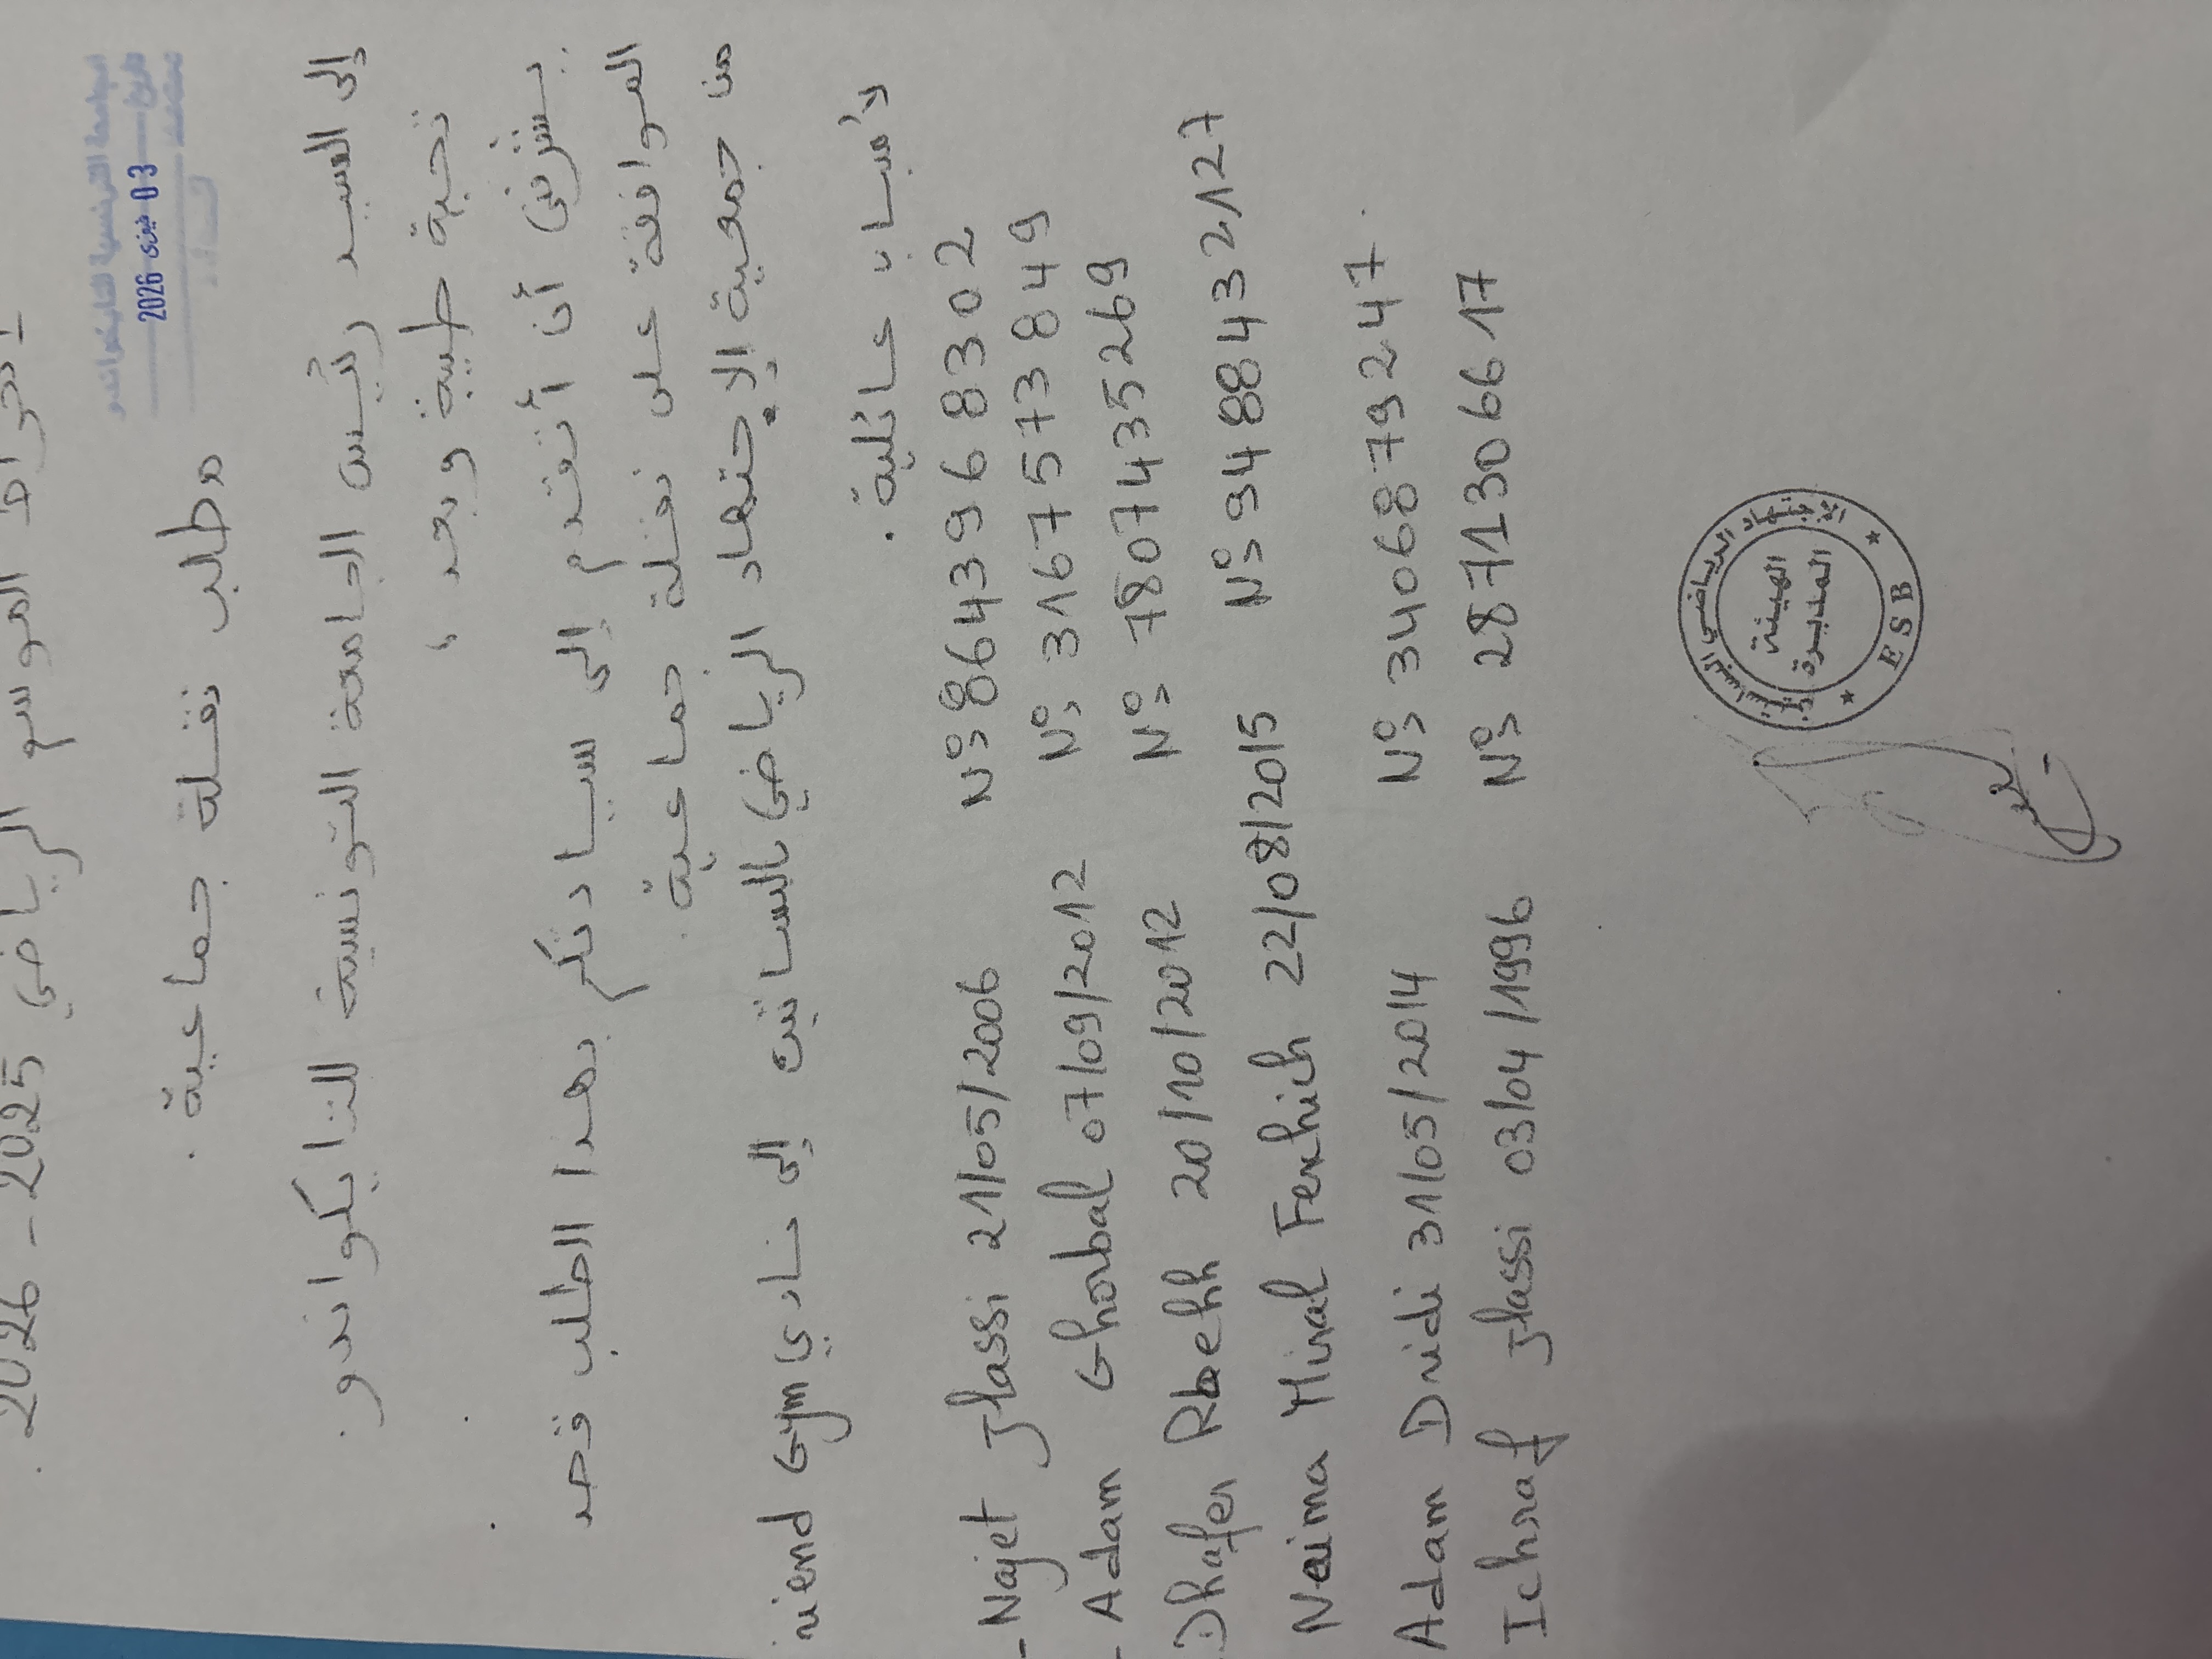 انخراط الموسم الرياضي 2025 - 2026.
الجامعة التونسية للتايكواندو
03 جانفي 2026
مطلب نقلة جماعية.
إلى السيد رئيس الجامعة التونسية للتايكواندو.
تحية طيبة وبعد،
يشرفني أن أتقدم إلى سيادتكم بهذا الطلب قصد
الموافقة على نقلة جماعية.
من جمعية الإجتهاد الرياضي بالبساتين إلى نادي Gym
لأسباب عائلية.
- Najet Jlassi 21/05/2006 N°: 86439683 02
- Adam Ghorbal 07/09/2012 N°: 3167573849
Dhafer Rbechh 20/10/2012 N°: 7807435269
Neima Miral Ferhich 22/08/2015 N°: 9488432127
Adam Dridi 31/05/2014 N°: 3406879247
Ichraf Jlassi 03/04/1996 N°: 2871306617
الإجتهاد الرياضي البساتين
الهيئة
المديرة
★ ESB ★